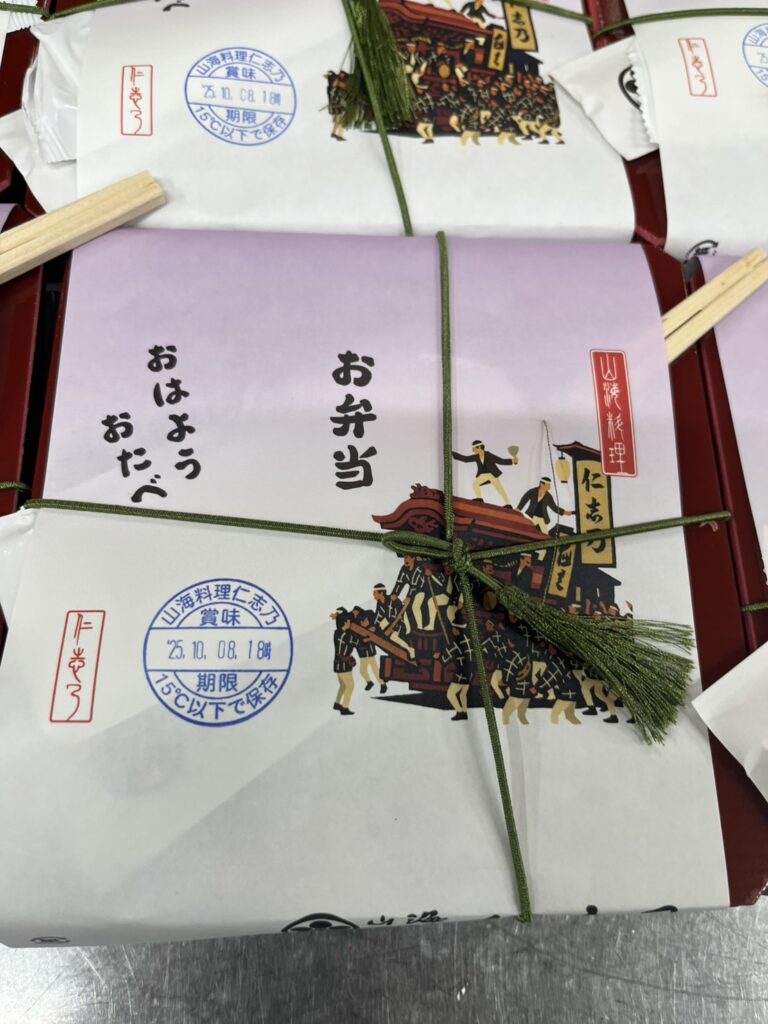 仁志乃
山海料理仁志乃
賞味
'25.10.08.18時
期限
15℃以下で保存
仁志乃
山海料理
お弁当
おはよう
おたべ
仁志乃
仁志乃
山海料理仁志乃
賞味
'25.10.08.18時
期限
15℃以下で保存
山海